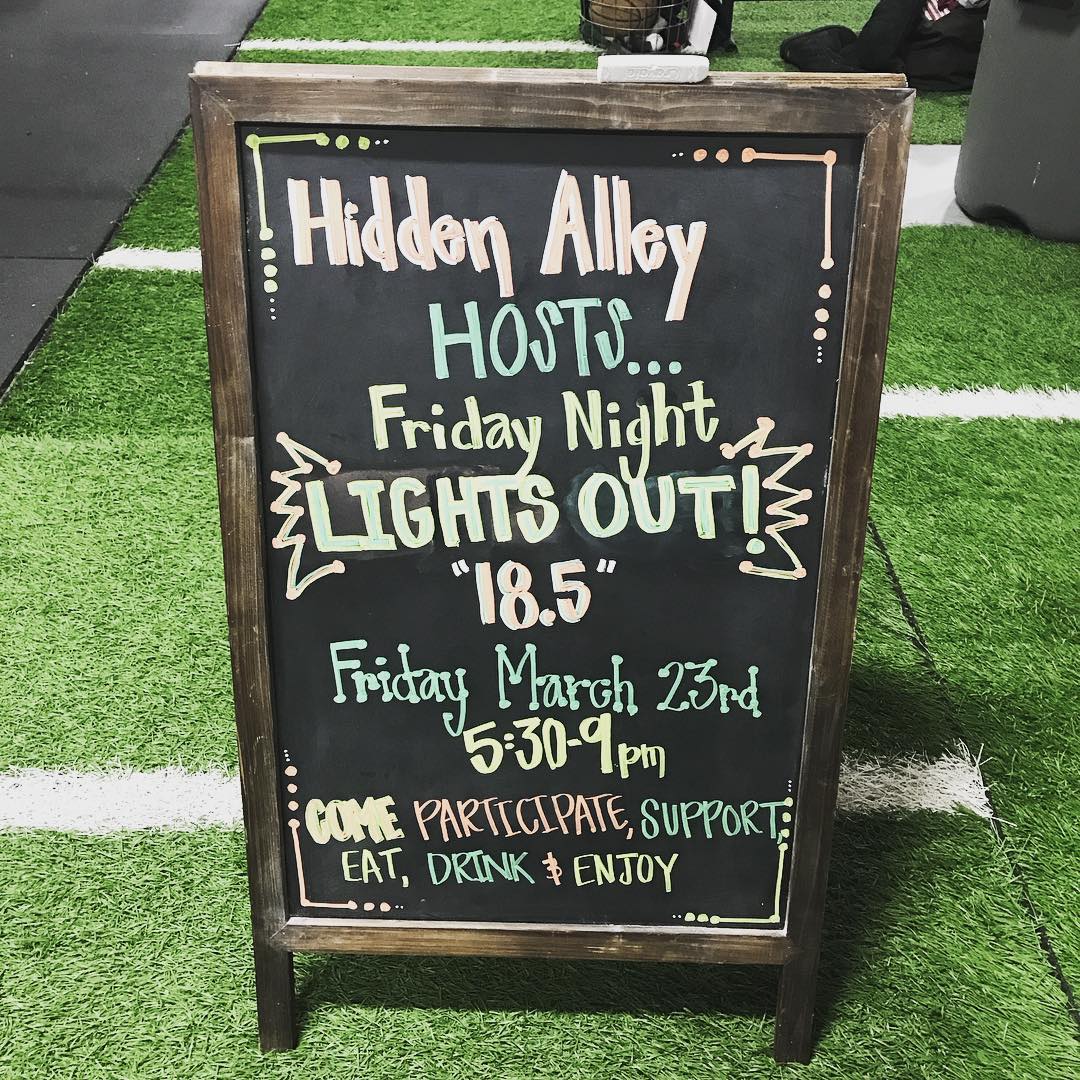 Hidden Alley
HOSTS...
Friday Night
LIGHTS OUT!
"18.5"
Friday March 23rd
5:30-9pm
COME PARTICIPATE, SUPPORT,
EAT, DRINK & ENJOY